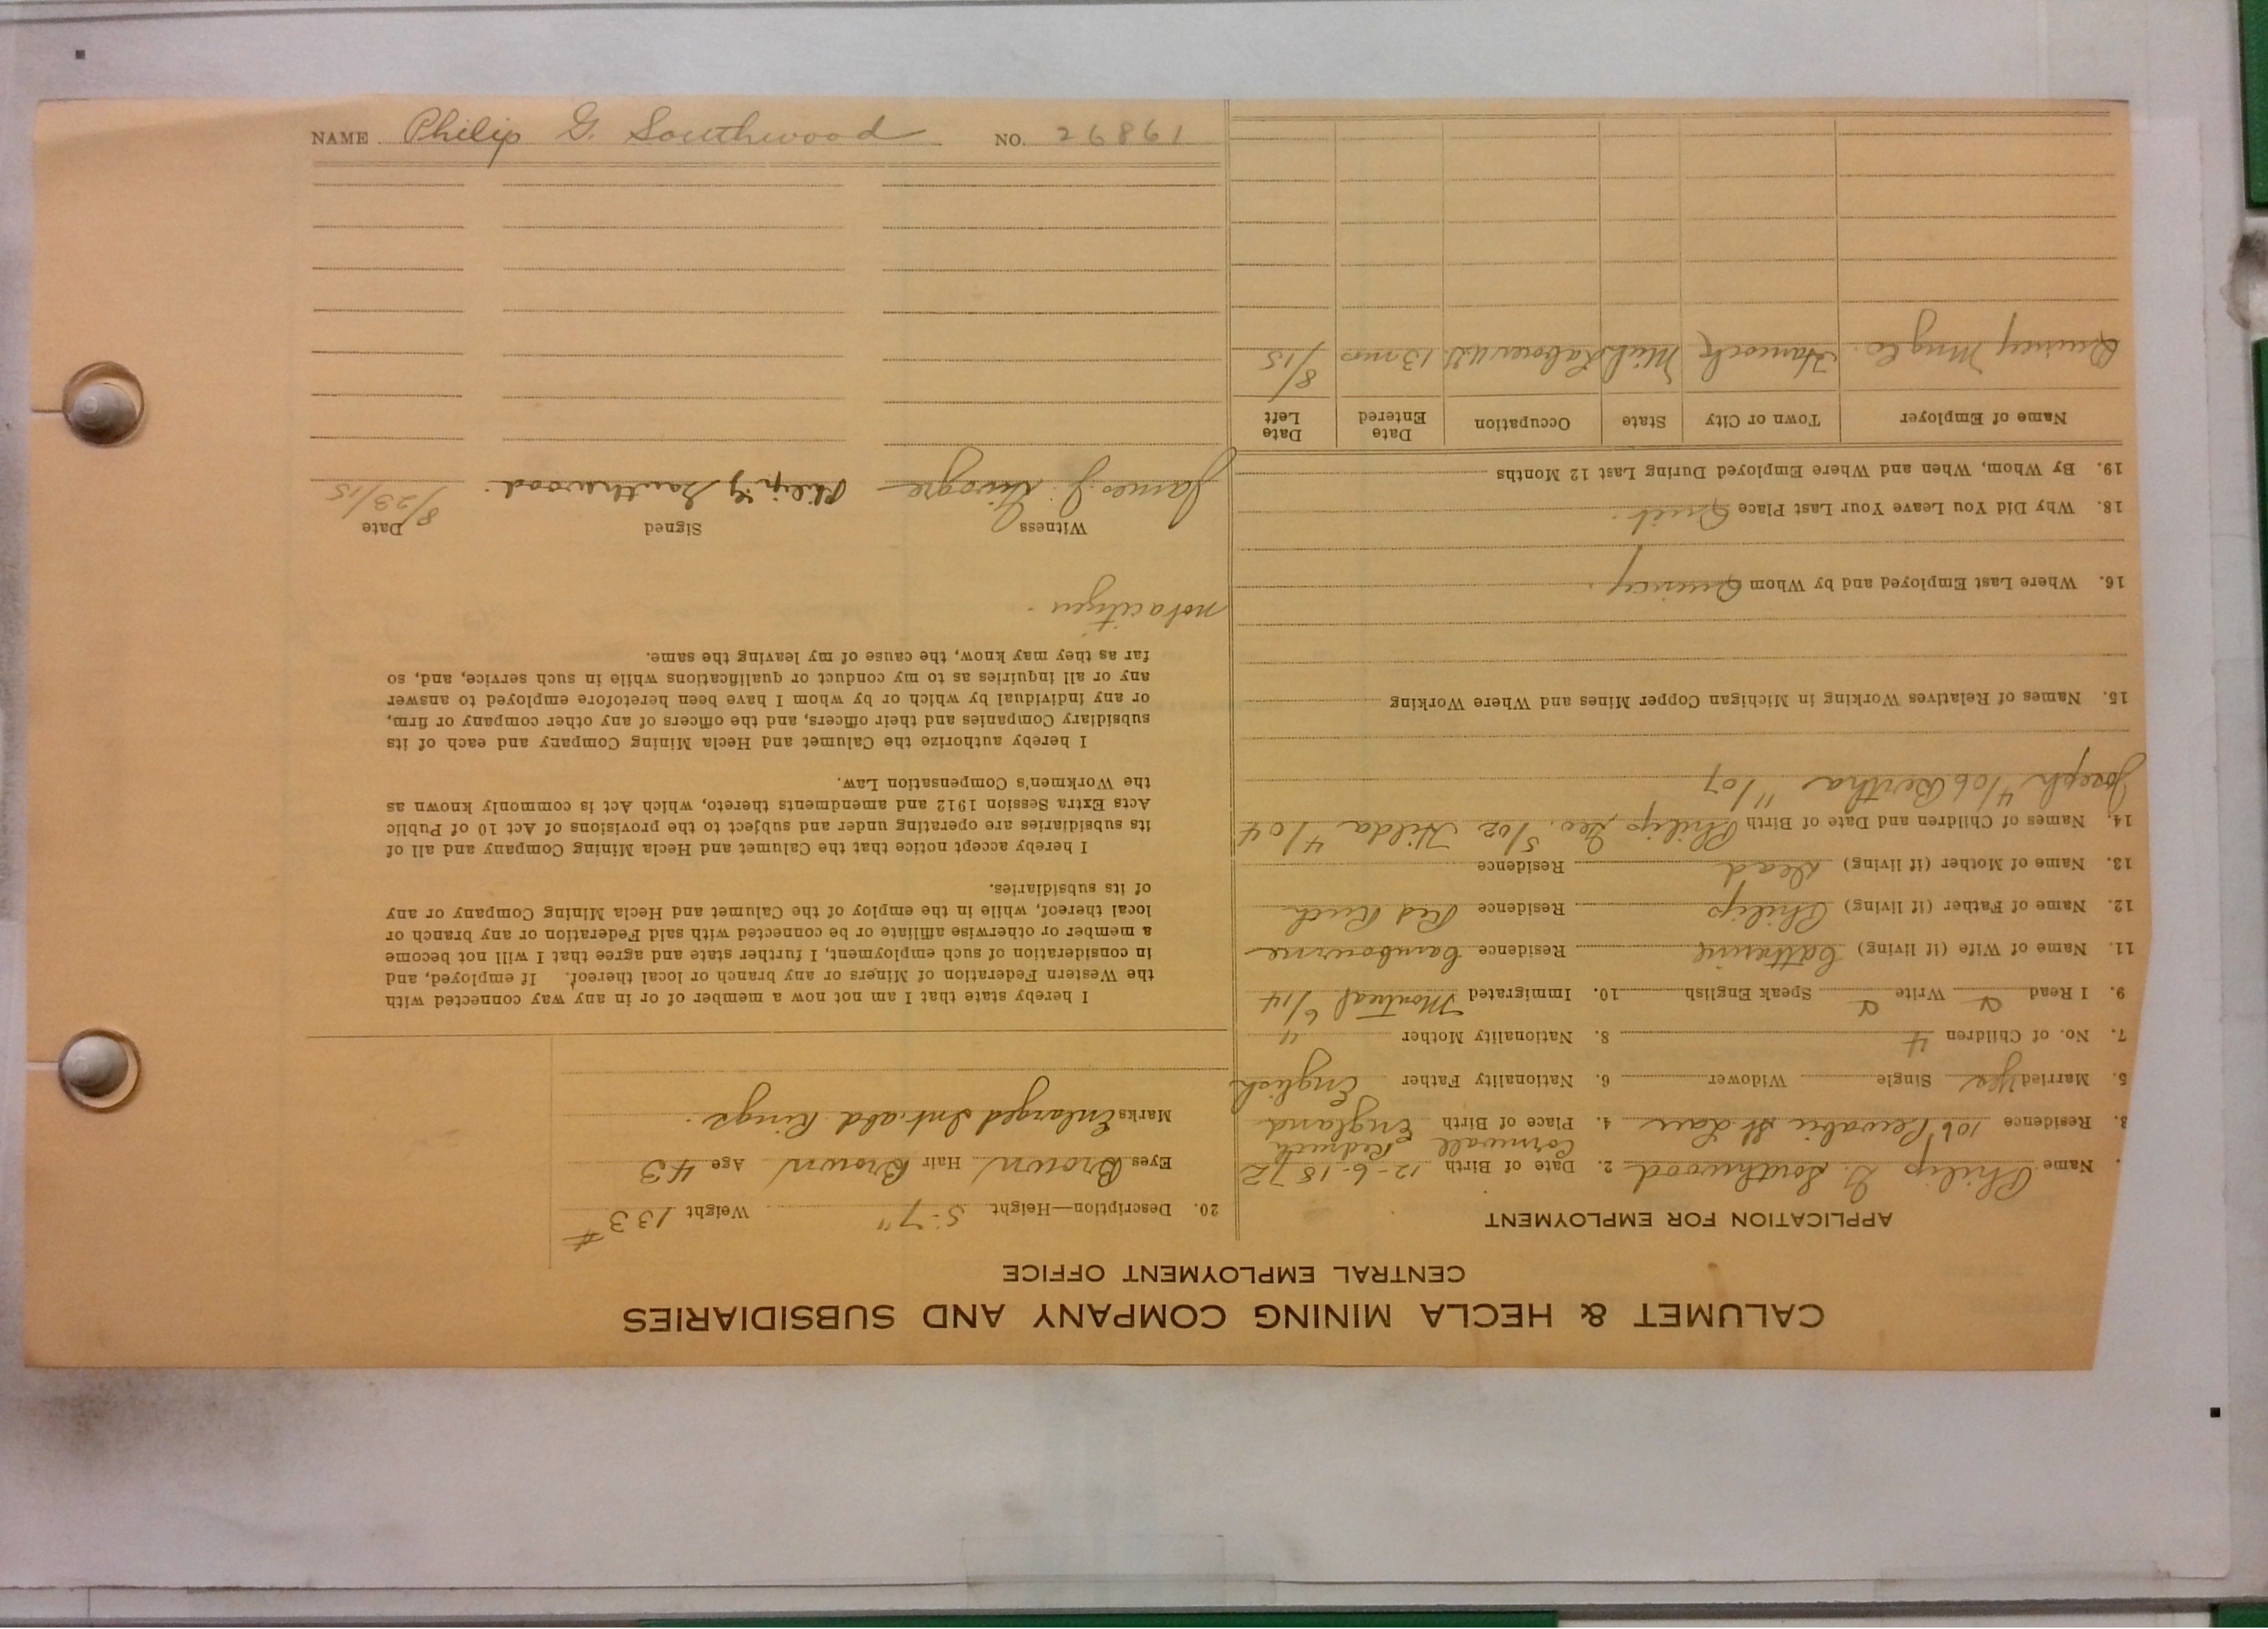 NAME Philip G. Southwood NO. 26861
CALUMET & HECLA MINING COMPANY AND SUBSIDIARIES
CENTRAL EMPLOYMENT OFFICE
APPLICATION FOR EMPLOYMENT
Name Philip G. Southwood 2. Date of Birth 12-6-1872
3. Residence 106 Pewabic St Laur 4. Place of Birth Cornwall Redruth England
5. Married yes Single Widower 6. Nationality Father English
7. No. of Children 4 8. Nationality Mother "
9. I Read Write Speak English 10. Immigrated Montreal 6/14
11. Name of Wife (if living) Catharine Residence Cambourne
12. Name of Father (if living) Philip Residence Red Ruth
13. Name of Mother (if living) Dead Residence
14. Names of Children and Date of Birth Philip, Geo. 5/02 Hilda 4/04
Joseph 4/06 Bertha 11/07
15. Names of Relatives Working in Michigan Copper Mines and Where Working
16. Where Last Employed and by Whom Quincy.
18. Why Did You Leave Your Last Place Quit.
19. By Whom, When and Where Employed During Last 12 Months
Name of Employer Town or City State Occupation Date Entered Date Left
Quincy Mng Co. Hancock Mich Laborer U.G. 13 mos 8/15
20. Description—Height 5-7" Weight 133 #
Eyes Brown Hair Brown Age 43
Marks Enlarged Int abd Rings.
I hereby state that I am not now a member of or in any way connected with
the Western Federation of Miners or any branch or local thereof. If employed, and
in consideration of such employment, I further state and agree that I will not become
a member or otherwise affiliate or be connected with said Federation or any branch or
local thereof, while in the employ of the Calumet and Hecla Mining Company or any
of its subsidiaries.
I hereby accept notice that the Calumet and Hecla Mining Company and all of
its subsidiaries are operating under and subject to the provisions of Act 10 of Public
Acts Extra Session 1912 and amendments thereto, which Act is commonly known as
the Workmen's Compensation Law.
I hereby authorize the Calumet and Hecla Mining Company and each of its
subsidiary Companies and their officers, and the officers of any other company or firm,
or any individual by which or by whom I have been heretofore employed to answer
any or all inquiries as to my conduct or qualifications while in such service, and, so
far as they may know, the cause of my leaving the same.
not a citizen.
Witness Signed Date
James J. Philip G Southwood. 8/23/15